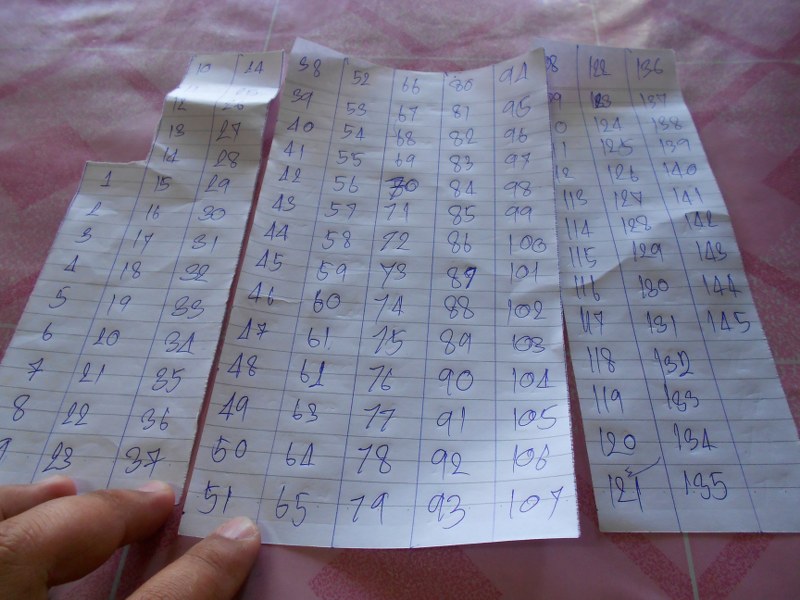 10 24
12 26
13 27
14 28
1 15 29
2 16 30
3 17 31
4 18 32
5 19 33
6 20 34
7 21 35
8 22 36
9 23 37
38 52 66 80 94
39 53 67 81 95
40 54 68 82 96
41 55 69 83 97
42 56 70 84 98
43 57 71 85 99
44 58 72 86 100
45 59 73 87 101
46 60 74 88 102
47 61 75 89 103
48 62 76 90 104
49 63 77 91 105
50 64 78 92 106
51 65 79 93 107
08 122 136
09 123 137
0 124 138
1 125 139
12 126 140
113 127 141
114 128 142
115 129 143
116 130 144
117 131 145
118 132
119 133
120 134
121 135